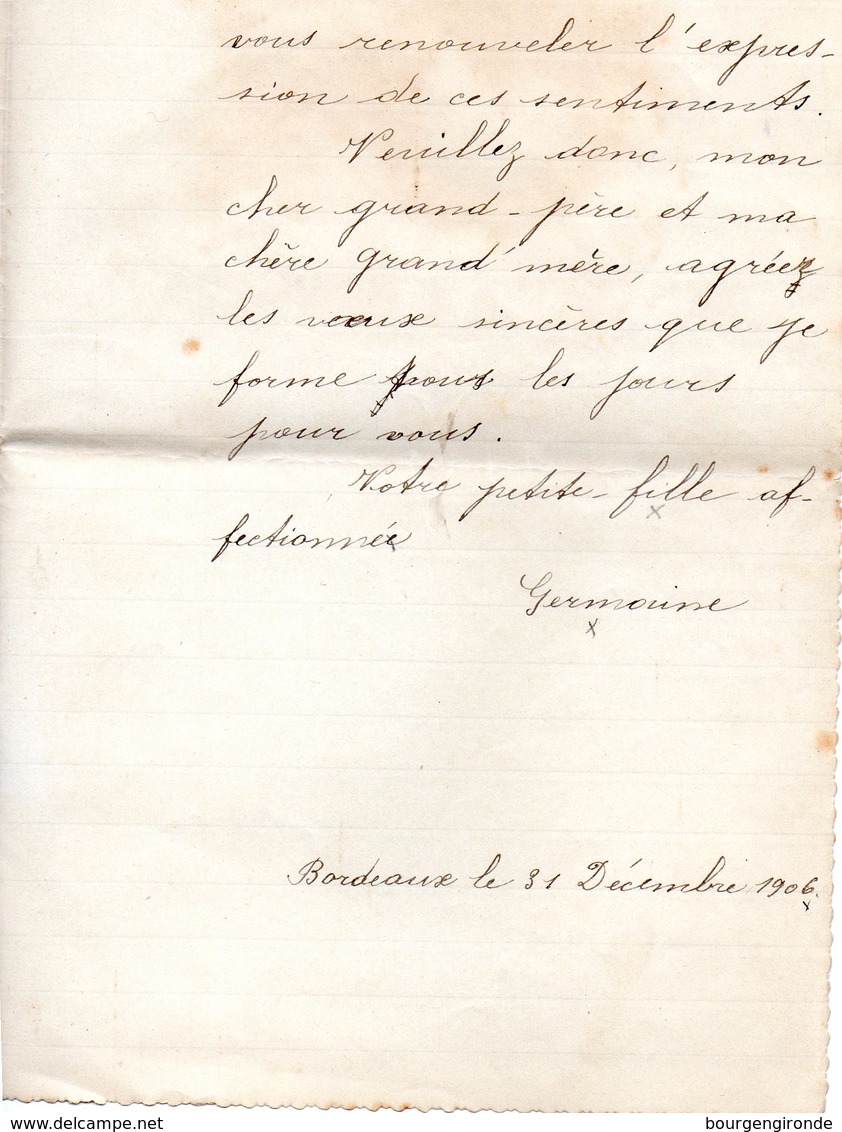 vous renouveler l'expres-
sion de ces sentiments.
Veuillez donc, mon
cher grand-père et ma
chère grand'mère, agréez
les vœux sincères que je
forme tous les jours
pour vous.
Votre petite-fille af-
fectionnée
Germaine
Bordeaux le 31 Décembre 1906.
www.delcampe.net
bourgengironde